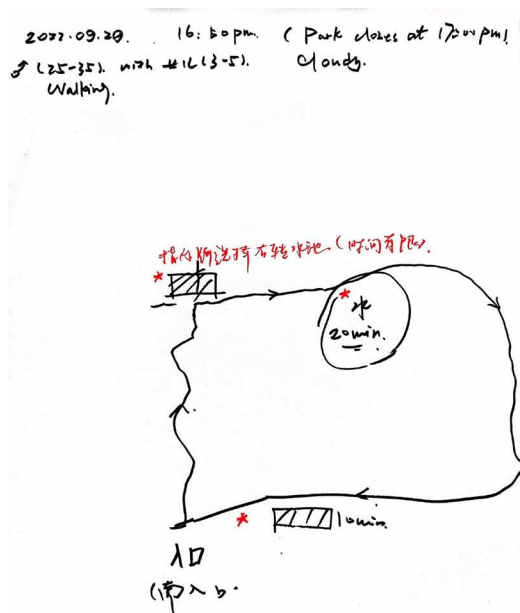 2022.09.29. 16:50pm. (Park closes at 17:00pm)
♂(25-35). with (3-5). Cloudy.
Walking.
指 牌选择右转水池(时间有限).
水
20min.
10min.
入口
(南)入